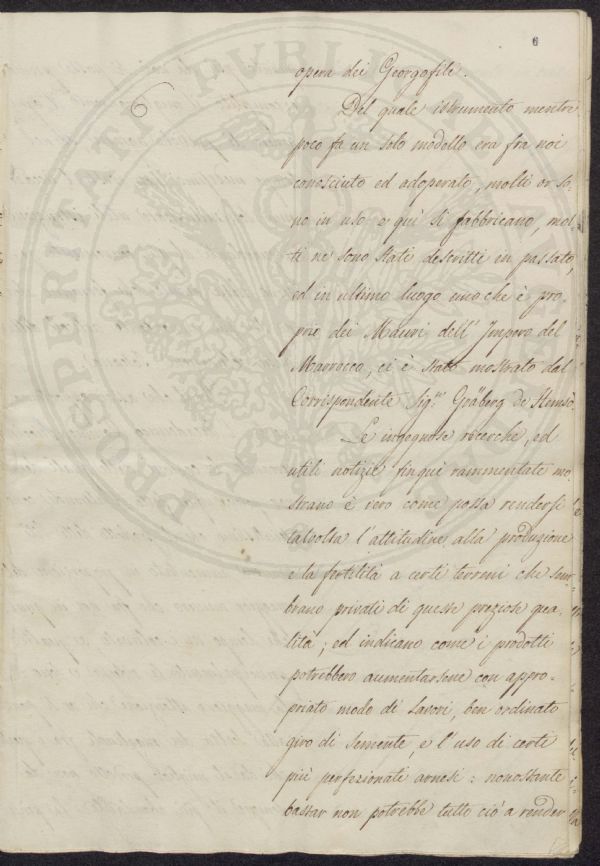 6
6
opera dei Georgofili.
Del quale istrumento mentre
poco fa un solo modello era fra noi
conosciuto ed adoperato, molti or so,
no in uso e quì si fabbricano, mol,
ti ne sono stati descritti in passato,
ed in ultimo luogo uno che è pro,
prio dei Mauri dell' Impero del
Marrocco, ci è stato mostrato dal
Corrispondente Sig.re Gräberg de Hemsö.
Le ingegnose ricerche, ed
utili notizie finquì rammentate mo,
strano è vero come possa rendersi
talvolta l'attitudine alla produzione
e la fertilità a certi terreni che sem,
brano privati di queste preziose qua,
lità; ed indicano come i prodotti
potrebbero aumentarsene con appro,
priato modo di lavori, ben ordinato
giro di semente, e l'uso di certi
più perfezionati arnesi: nonostante
bastar non potrebbe tutto ciò a render
PROSPERITATI PVBLICAE AVGENDAE